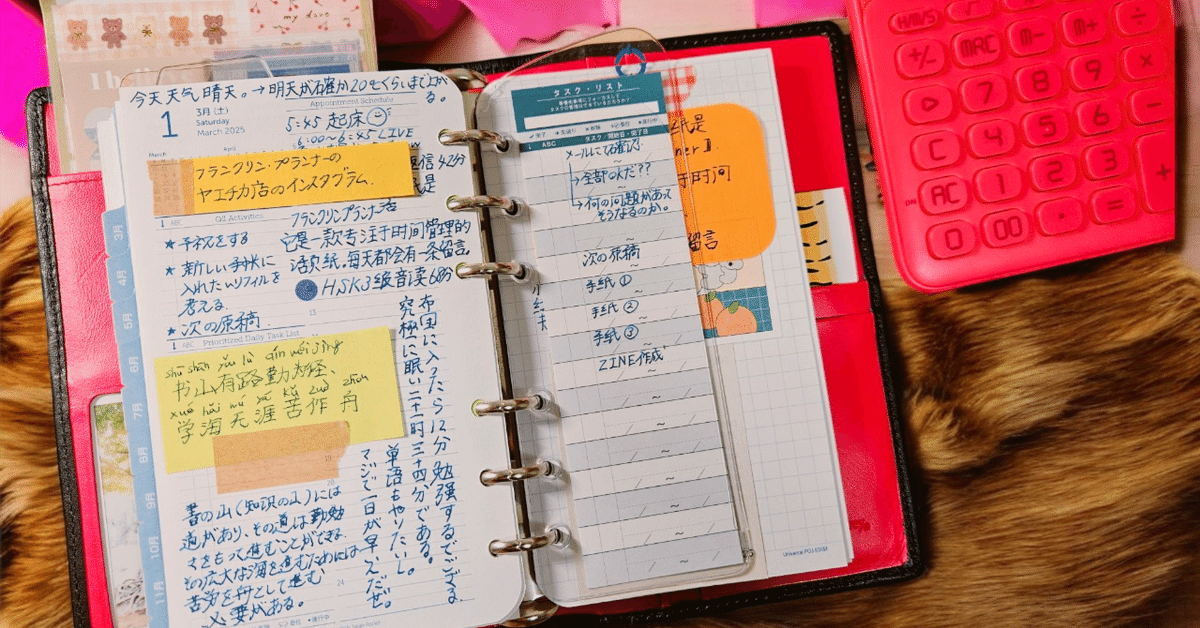 my love
今天天气晴天。→明天が確か20℃くらいまで上がる。
1
3月(土)
Saturday
March 2025
Appointment Schedule
5:45 起床
6:00〜6:45 LIVE
March
April
フランクリン・プランナーの
ヤエチカ店のインスタグラム.
1 ABC
Q2 Activities
フランクリンプランナー活
它是一款专注于时间管理的
活页纸。每天都会有一条留言。
HSK3級音读6分
★ 予祝をする
★ 新しい手帳に
入れたいリフィルを
考える.
★ 次の原稿
1 ABC
Prioritized Daily Task List
shū shān yǒu lù qín wéi jìng
书山有路勤为径、
xué hǎi wú yá kǔ zuò zhōu
学海无涯苦作舟
布団に入ったら12分勉強するでござる.
究極に眠い二十一時三十四分である。
単語もやりたいし。
マジで一日が早えだぜ。
書の山(知識の山)には
道があり、その道は勤勉
さをもって進むことができる.
その広大な海を進むためには
苦労を舟として進む
必要がある。
3月
4月
5月
6月
7月
8月
9月
10月
11月
タスク・リスト
1 ABC タスク/開始日・完了日
メールにて確認
→全部のんだ??
→何の問題があって
そうなるのか。
次の原稿
手紙①
手紙②
手紙③
ZINE作成
时间
留言
H/M/S
√
+/-
MRC
M-
M+
÷
7
8
9
×
C
4
5
6
-
ON
AC
1
2
3
+
0
00
·
=